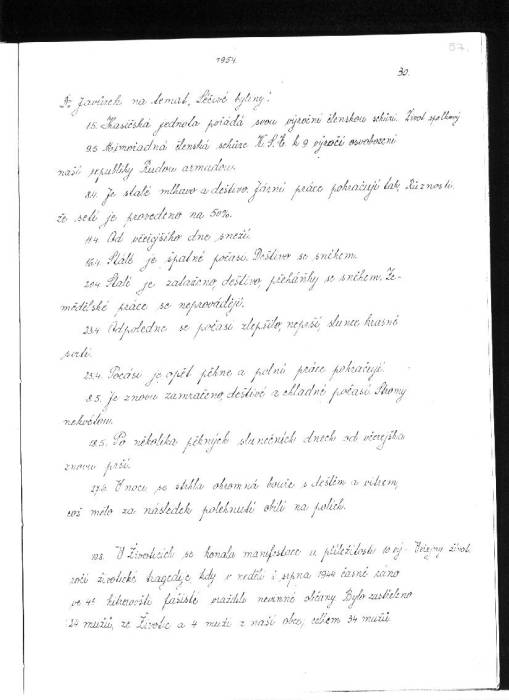 57.
1954.
30.
Dr Javůrek na temat, Léčivé byliny!
1.5. Hasičská jednota pořádá svou výroční členskou schůzi. Život spolkový
9.5. Mimořádná členská schůze K.S.Č. k 9 výročí osvobození
naší republiky Rudou armadou.
8.4. Je stálé mlhavo a deštivo. Jarní práce pokračují tak, Různosti.
že setí je provedeno na 50%.
11.4. Od včerejšího dne sneží.
16.4. Stálé je špatné počasí. Deštivo se sněhem.
20.4. Stálé je zataženo, deštivo, přeháňky se sněhem. Ze-
mědělské práce se neprovádějí.
23.4. Odpoledne se počasí zlepšilo, neprší, slunce krasně
svítí.
25.4. Počásí je opět pěkne a polní práce pokračují.
8.5. Je znovu zamračeno, deštivé a chladné počasí. Stromy
nekvétou.
18.5. Po několika pěkných slunečních dnech od včerejška
znovu prší.
17.6. V noci se strhla ohromná bouře s deštěm a vitrem,
což mělo za následek polehnutí obilí na polích.
10.8. V Životicích se konala manifestace u příležitosti 10 vý- Veřejný život
ročí životické tragedije, kdy v neděli 6 srpna 1944 časně ráno
ve 4h hitlerovští fašisté vraždili nevinné občany. Bylo zastřeleno
24 mužů, ze Životic a 4 muži z naší obce, celkem 34 mužů.